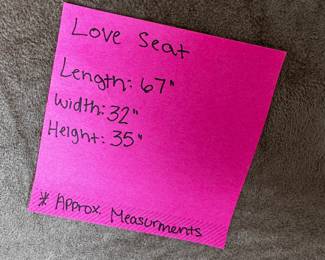 Love Seat
Length: 67"
Width: 32"
Height: 35"
* Approx. Measurments